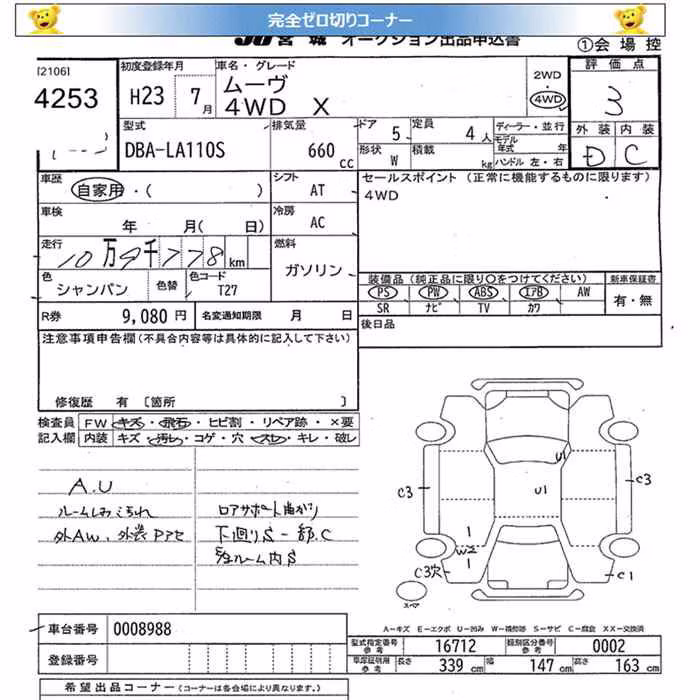 完全ゼロ切りコーナー
JU 宮城 オークション出品申込書
①会場控
[2106]
4253
初度登録年月
H23 7月
車名・グレード
ムーヴ
4WD X
2WD
・
4WD
評価点
3
外装 内装
D C
型式
DBA-LA110S
排気量
660 cc
ドア 5
定員 4人
形状 W
積載 kg
ディーラー・並行
モデル年式 年
ハンドル 左・右
車歴
自家用・( )
シフト
AT
車検
年 月( 日)
冷房
AC
走行
10万9千778km
燃料
ガソリン
色
シャンパン
色替
色コード
T27
R券 9,080円
名変通知期限 月 日
セールスポイント (正常に機能するものに限ります)
4WD
装備品(純正品に限り○をつけてください)
PS PW ABS エアB AW
SR ナビ TV カワ
新車保証書
有・無
後日品
注意事項申告欄(不具合内容等は具体的に記入して下さい)
修復歴 有 〔箇所 〕
検査員記入欄
FW キズ・飛石・ヒビ割・リペア跡・×要
内装 キズ・汚れ・コゲ・穴・スレ・キレ・破レ
A.U
ルームしみこちれ
外AW、外装Pアセ
ロアサポート曲がり
下廻りS一部C
ルーム内S
U1
U1
C3
C3
1
W2
1
C3穴
C1
スペア
A-キズ E-エクボ U-凹み W-補修跡 S-サビ C-腐食 XX-交換済
車台番号 0008988
登録番号
型式指定番号 参考 16712
類別区分番号 参考 0002
車庫証明用 参考 長さ 339cm 幅 147cm 高さ 163cm
希望出品コーナー(コーナーは各会場により異なります。)